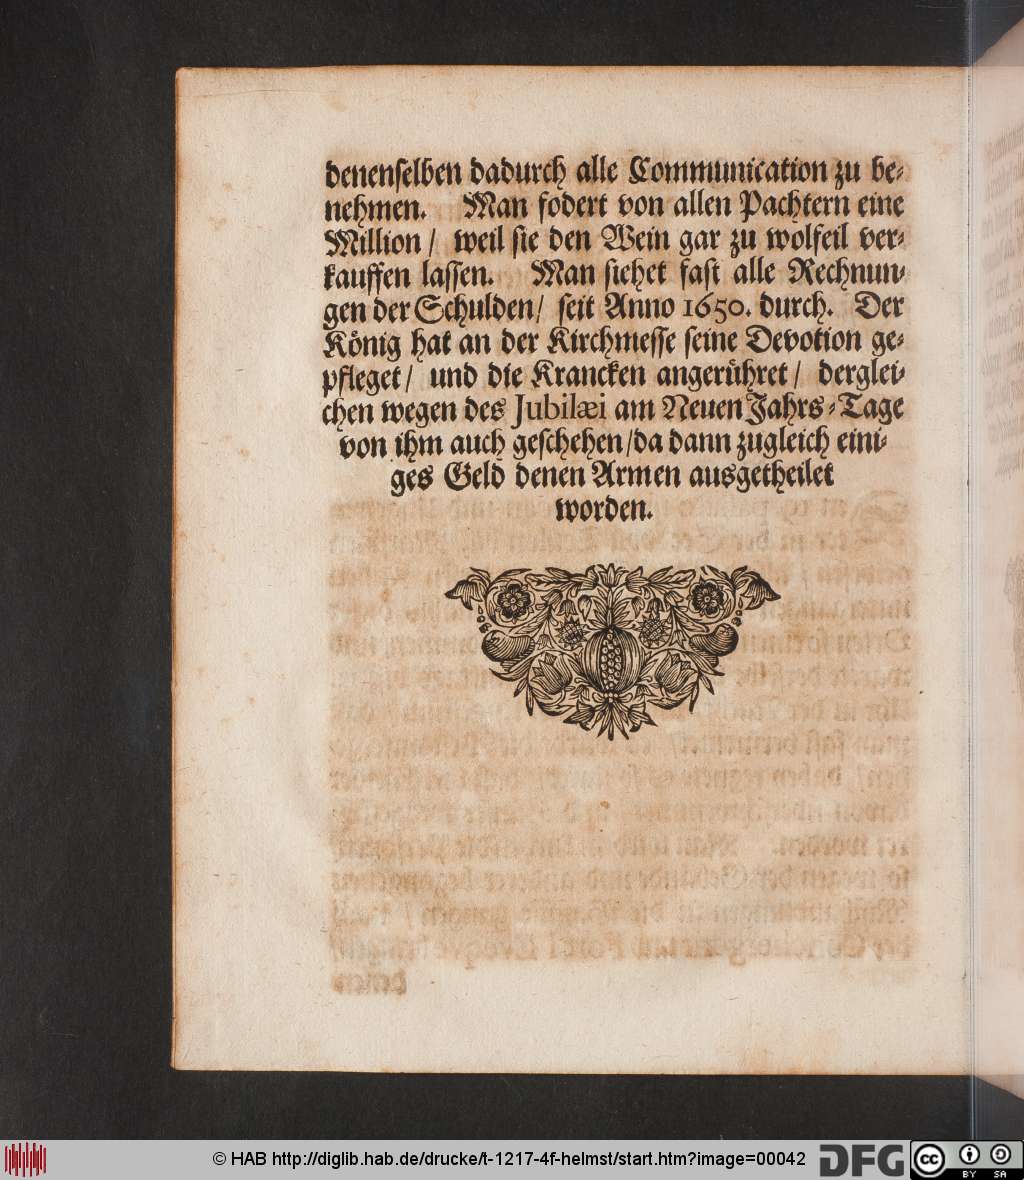 denenselben dadurch alle Communication zu be-
nehmen. Man fodert von allen Pachtern eine
Million / weil sie den Wein gar zu wolfeil ver-
kauffen lassen. Man siehet fast alle Rechnun-
gen der Schulden / seit Anno 1650. durch. Der
König hat an der Kirchmesse seine Devotion ge-
pfleget / und die Krancken angerühret / derglei-
chen wegen des Jubilæi am Neuen Jahrs-Tage
von ihm auch geschehen / da dann zugleich eini-
ges Geld denen Armen ausgetheilet
worden.
© HAB http://diglib.hab.de/drucke/t-1217-4f-helmst/start.htm?image=00042
DFG
cc BY SA